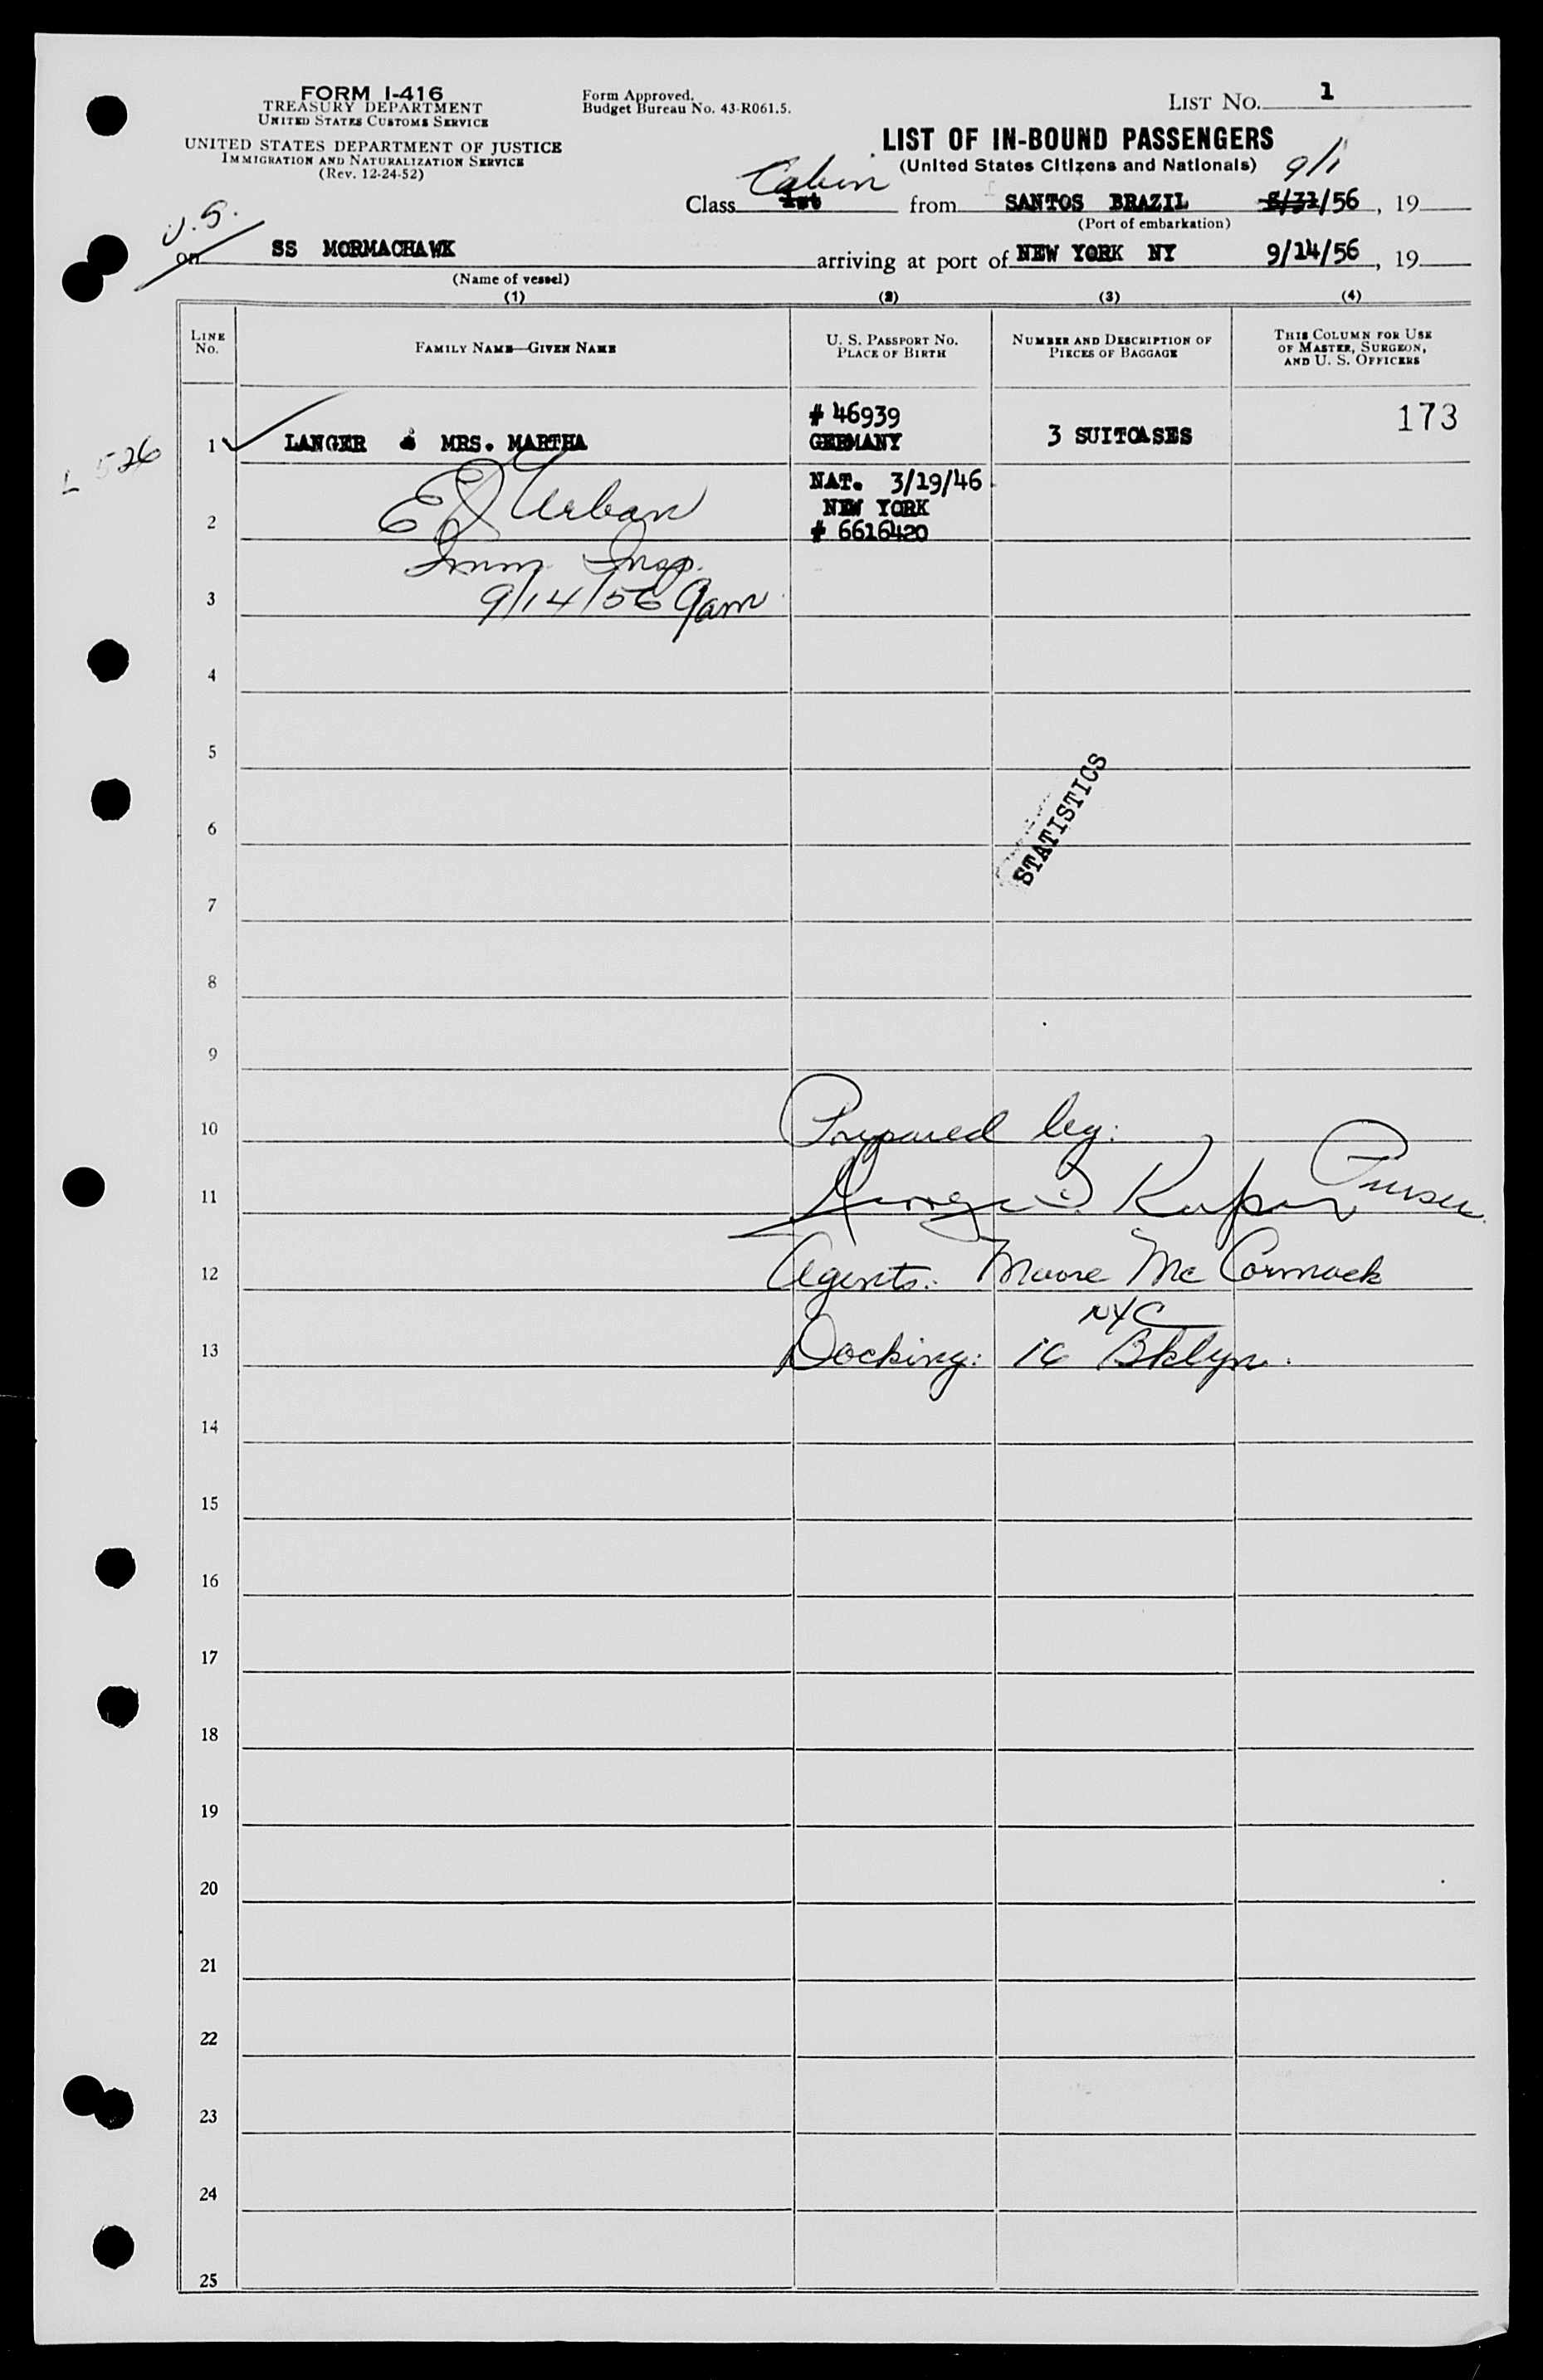 FORM I-416
TREASURY DEPARTMENT
UNITED STATES CUSTOMS SERVICE
UNITED STATES DEPARTMENT OF JUSTICE
IMMIGRATION AND NATURALIZATION SERVICE
(Rev. 12-24-52)
Form Approved.
Budget Bureau No. 43-R061.5.
LIST NO. 1
LIST OF IN-BOUND PASSENGERS
(United States Citizens and Nationals)
Cabin 9/1
Class 1st from SANTOS BRAZIL 8/31/56, 19
(Port of embarkation)
U.S.
on SS MORMACHAWK arriving at port of NEW YORK NY 9/14/56, 19
(Name of vessel)
(1) (2) (3) (4)
LINE NO. FAMILY NAME—GIVEN NAME U. S. PASSPORT NO. PLACE OF BIRTH NUMBER AND DESCRIPTION OF PIECES OF BAGGAGE THIS COLUMN FOR USE OF MASTER, SURGEON, AND U. S. OFFICERS
# 46939 173
L 526 1 LANGER MRS. MARTHA GERMANY 3 SUITCASES
NAT. 3/19/46
NEW YORK
2 E J Urban # 6616420
Imm. Insp.
3 9/14/56 9am
4
5
STATISTICS
6
7
8
9
10 Prepared by:
11 George Purser
12 Agents: Moore McCormack
NYC
13 Docking: 16 Bklyn.
14
15
16
17
18
19
20
21
22
23
24
25